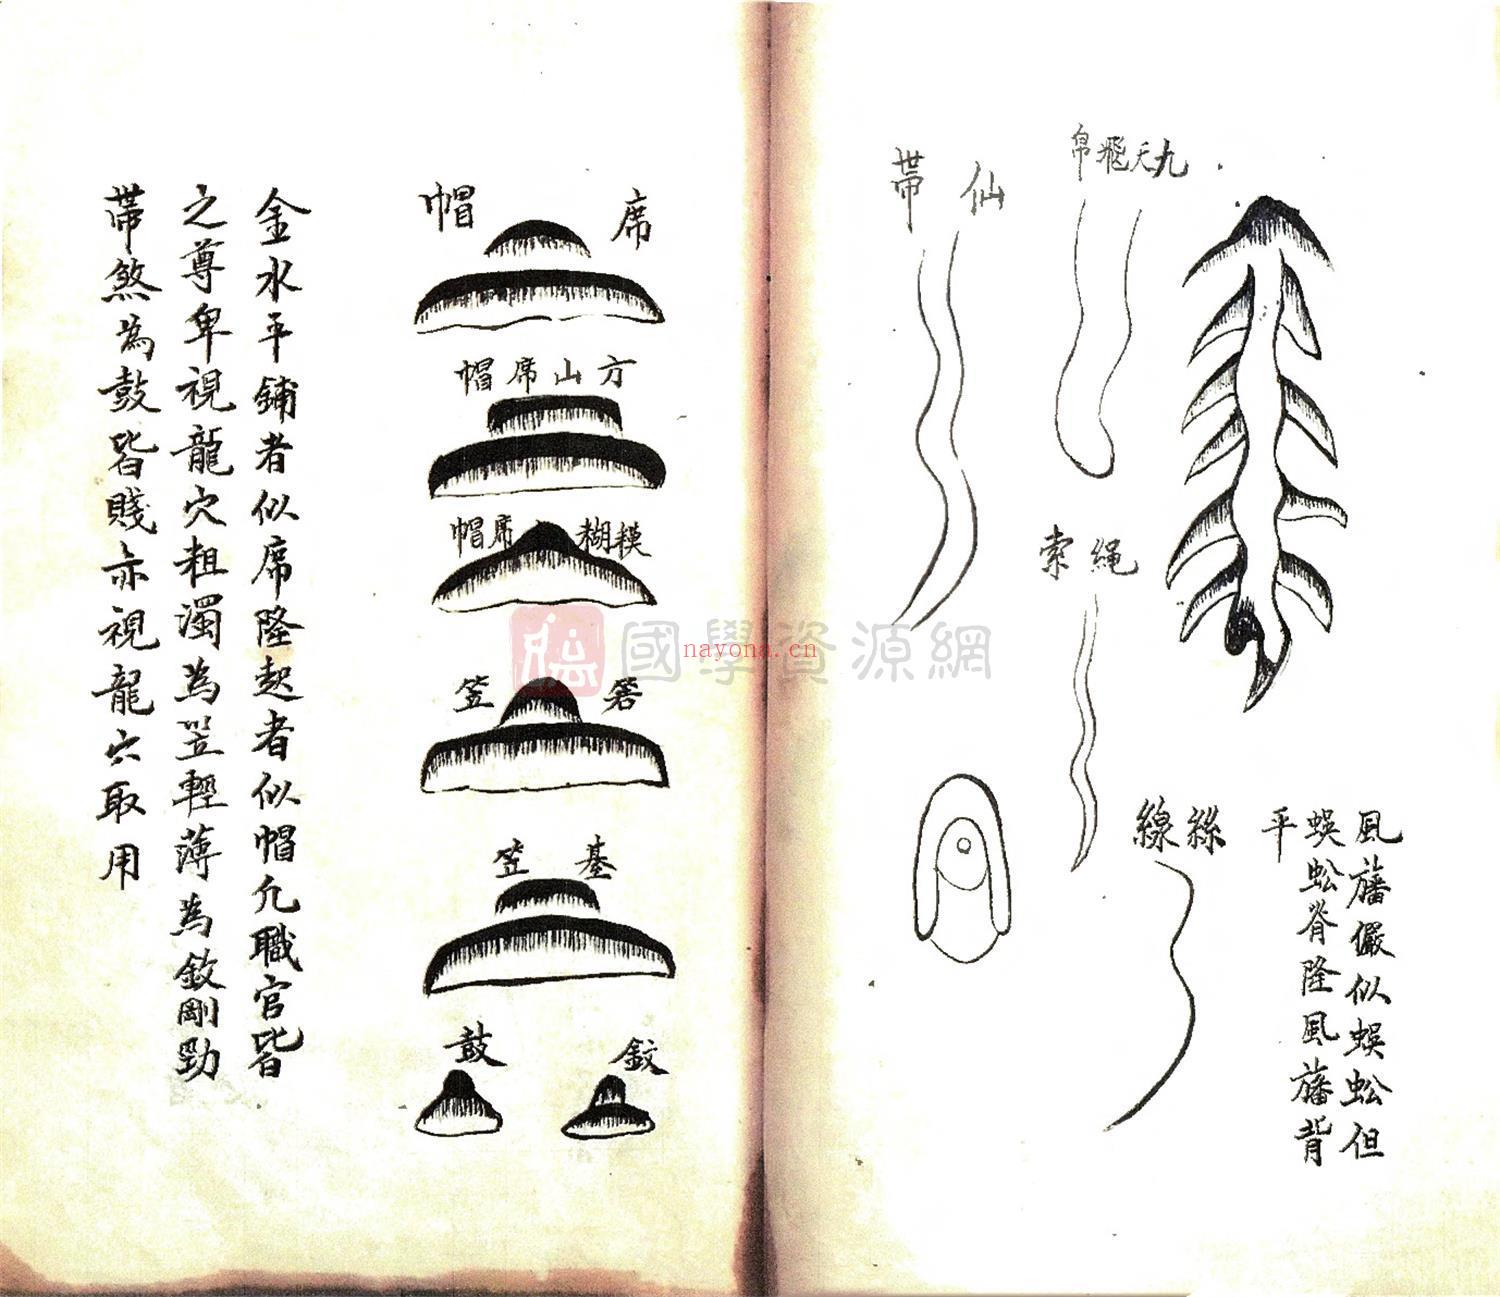 九天飛帛
仙帶
繩索
絲線
風旛儼似蜈蚣但
蜈蚣脊隆風旛背
平
席帽
方山席帽
模糊席帽
箬笠
基笠
鈸
鼓
金水平鋪者似席隆起者似帽凢職官皆
之尊卑視龍穴粗濁為笠輕薄為鈸剛勁
帶煞為鼓皆賤亦視龍穴取用
國學資源網
nayona.cn